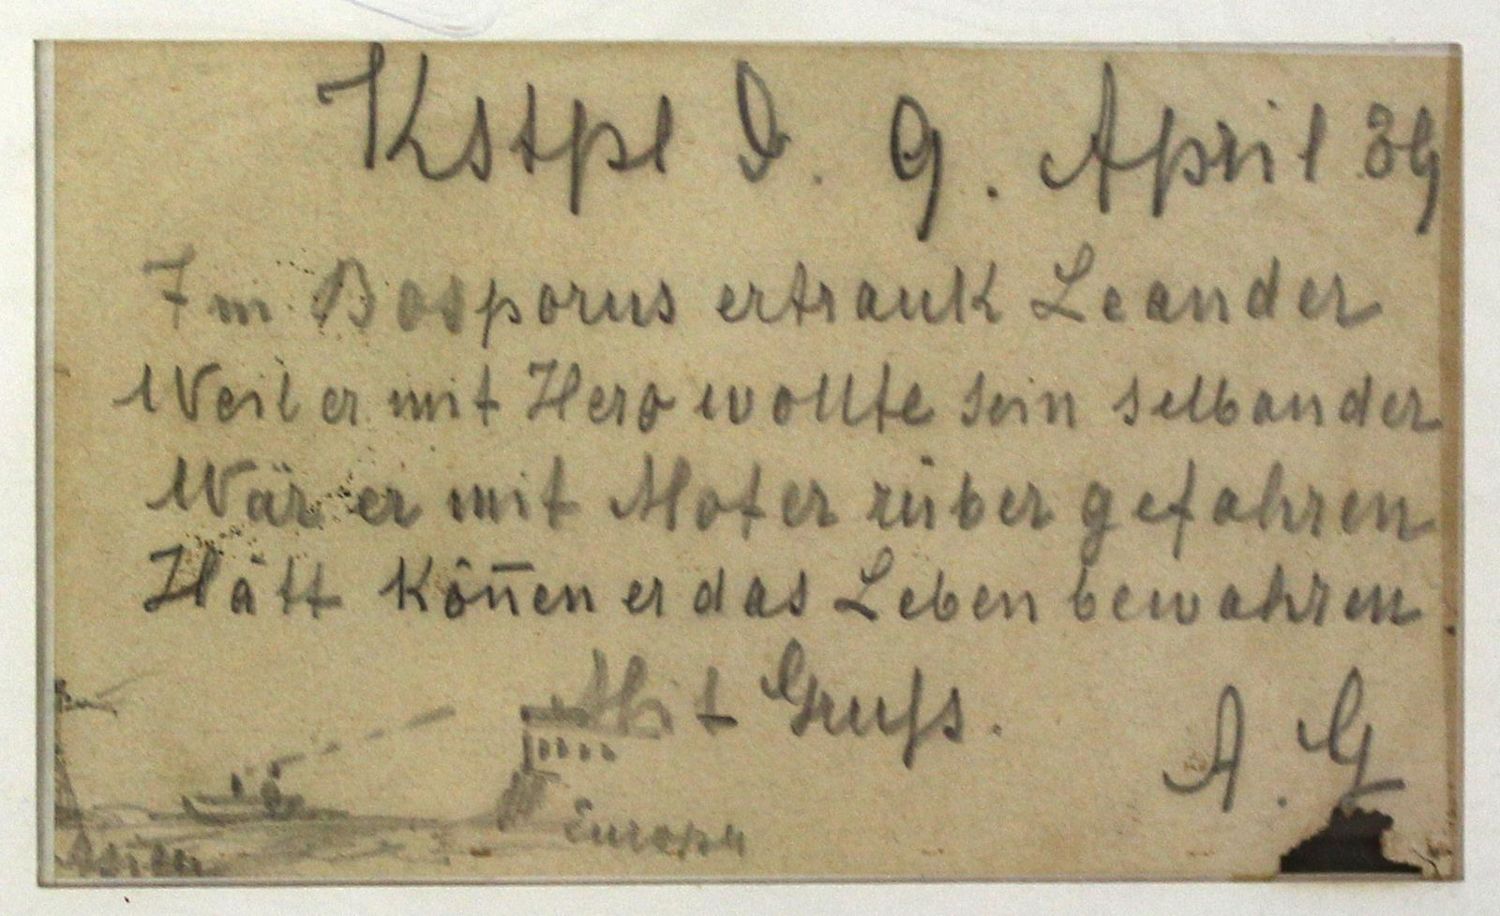 Kstpl D. 9. April 39
Im Bosporus ertrank Leander
Weil er mit Hero wollte sein selbander
Wär er mit Moter rüber gefahren
Hätt kön̄en er das Leben bewahren
Mit Gruſs.
A. G
Europa
Asien